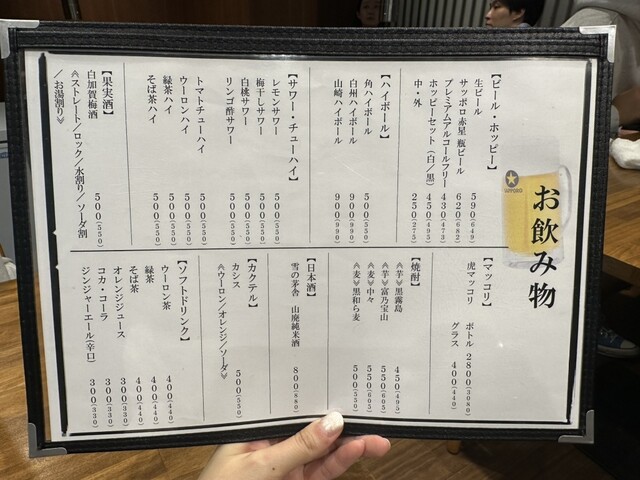 お飲み物
SAPPORO
【ビール・ホッピー】
生ビール 590(649)
サッポロ赤星 瓶ビール 620(682)
プレミアムアルコールフリー 430(473)
ホッピーセット(白/黒) 450(495)
中・外 250(275)
【ハイボール】
角ハイボール 500(550)
白州ハイボール 900(990)
山崎ハイボール 900(990)
【サワー・チューハイ】
レモンサワー 500(550)
梅干しサワー 500(550)
白桃サワー 500(550)
リンゴ酢サワー 500(550)
トマトチューハイ 500(550)
ウーロンハイ 500(550)
緑茶ハイ 500(550)
そば茶ハイ 500(550)
【果実酒】
白加賀梅酒 500(550)
≪ストレート/ロック/水割り/ソーダ割
/お湯割り≫
【マッコリ】
虎マッコリ ボトル 2800(3080)
グラス 400(440)
【焼酎】
≪芋≫黒霧島 450(495)
≪芋≫富乃宝山 550(605)
≪麦≫中々 550(605)
≪麦≫黒和ら麦 500(550)
【日本酒】
雪の茅舎 山廃純米酒 800(880)
【カクテル】
カシス 500(550)
≪ウーロン/オレンジ/ソーダ≫
【ソフトドリンク】
ウーロン茶 400(440)
緑茶 400(440)
そば茶 400(440)
オレンジジュース 300(330)
コカ・コーラ 300(330)
ジンジャーエール(辛口) 300(330)